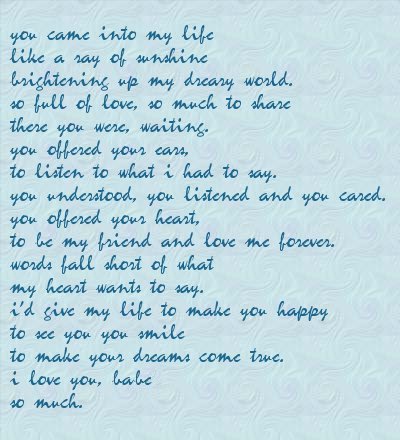 you came into my life
like a ray of sunshine
brightening up my dreary world.
so full of love, so much to share
there you were, waiting.
you offered your ears,
to listen to what i had to say.
you understood, you listened and you cared.
you offered your heart,
to be my friend and love me forever.
words fall short of what
my heart wants to say.
i'd give my life to make you happy
to see you you smile
to make your dreams come true.
i love you, babe
so much.